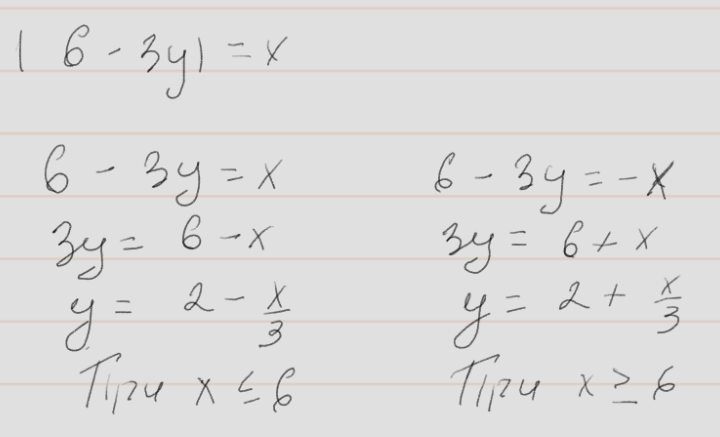 | 6 - 3y| = x
6 - 3y = x
3y = 6 - x
y = 2 - x/3
При x ≤ 6
6 - 3y = -x
3y = 6 + x
y = 2 + x/3
При x ≥ 6